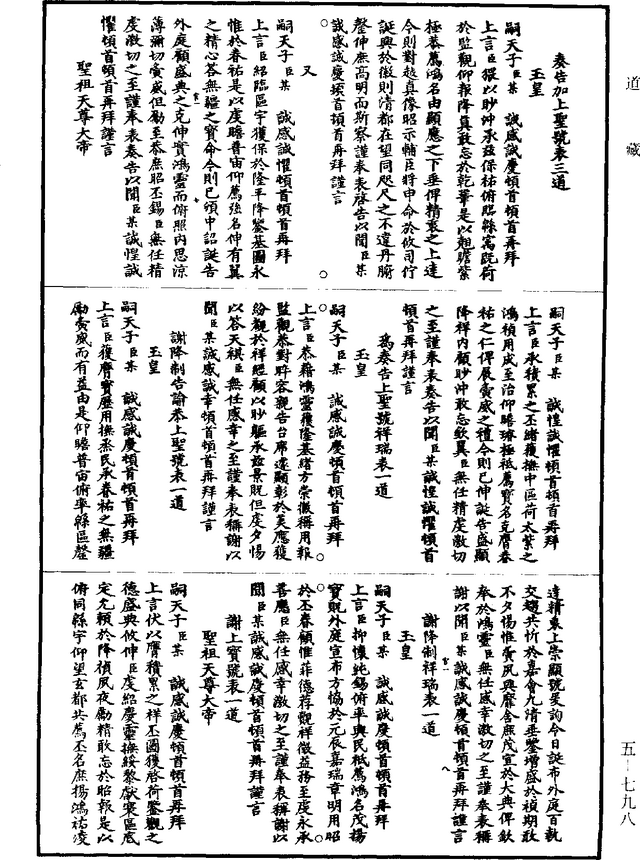 道藏
奏告加上聖號表三道
玉皇
嗣天子臣某　誠感誠慶頓首頓首再拜
上言臣猥以眇沖承茲保祐俯臨縣㝢既荷
於監觀仰報降眞敢忘於乾鞏是以覬瞻紫
極恭薦鴻名由顯應之下垂俾精衷之上達
今則對越真像昭示輔臣將申命於攸司佇
誕興於徽則清都在望同咫尺之不違丹腑
罄伸庶高明而斯察謹奉表啓告以聞臣某
誠感誠慶頓首頓首再拜謹言
又
嗣天子臣某　誠感誠懼頓首頓首再拜
上言臣紹臨區宇獲保於隆平降鑒基圖永
惟於眷祐是以虔瞻普宙仰薦強名伸有翼
之精心荅無疆之寶命今則已頒中詔誕告
外庭顧盛典之克伸實鴻靈而俯照內思涼
薄彌切夤威但勵至恭庶昭丕錫臣無任精
虔激切之至謹奉表奏告以聞臣某誠惶誠
懼頓首頓首再拜謹言
聖祖天尊大帝
嗣天子臣某　誠惶誠懼頓首頓首再拜
上言臣承積累之丕緒獲撫中區荷太紫之
鴻禎用成至治仰瞻璿極祇薦寶名克膺春
祐之仁俾展夤威之禮今則已伸誕告盛顯
降祥內顧眇沖敢忘欽翼臣無任精虔激切
之至謹奉表奏告以聞臣某誠惶誠懼頓首
頓首再拜謹言
爲奏告上聖號祥瑞表一道
玉皇
嗣天子臣某　誠感誠慶頓首頓首再拜
上言臣恭藉鴻靈獲隆基緒方崇徽稱用報
監觀恭對睟容親告台席遽顯彰於美應獲
紛觀於祥經顧以眇軀承茲景貺但虔夕惕
以答天祺臣無任感幸之至謹奉表稱謝以
聞臣某誠感誠幸頓首頓首再拜謹言
謝降制告諭恭上聖號表一道
玉皇
嗣天子臣某　誠感誠慶頓首頓首再拜
上言臣獲膺寶曆用撫烝民承眷祐之無疆
勵夤威而有益由是仰瞻普宙俯率縣區罄
達精衷上崇顯號爰詢今日誕布外庭百執
交趨共忻於嘉會九清垂鑒增盛於禎期敢
不夕惕惟夤夙興靡舍庶茂宣於大典俾欽
奉於鴻靈臣無任感幸激切之至謹奉表稱
謝以聞臣某誠感誠慶頓首頓首再拜謹言
謝降制祥瑞表一道
玉皇
嗣天子臣某　誠感誠慶頓首頓首再拜
上言臣抑懷純錫俯率興民祗薦鴻名茂揚
寶貺外庭宣布方協於元辰嘉瑞章明用昭
於丕眷顧惟菲德荐觀祥徵益務至虔永承
善應臣無任感幸激切之至謹奉表稱謝以
聞臣某誠感誠慶頓首頓首再拜謹言
謝上寶號表一道
聖祖天尊大帝
嗣天子臣某　誠感誠慶頓首頓首再拜
上言伏以膺積累之祥丕圖獲啓荷鑒觀之
德盛典攸伸臣虔紹慶靈撫綏黎獻寰區底
定允賴於降禎夙夜勵精敢忘於昭報是以
俯同縣宇仰望玄都共薦丕名庶揚鴻祐淩
五—七九八